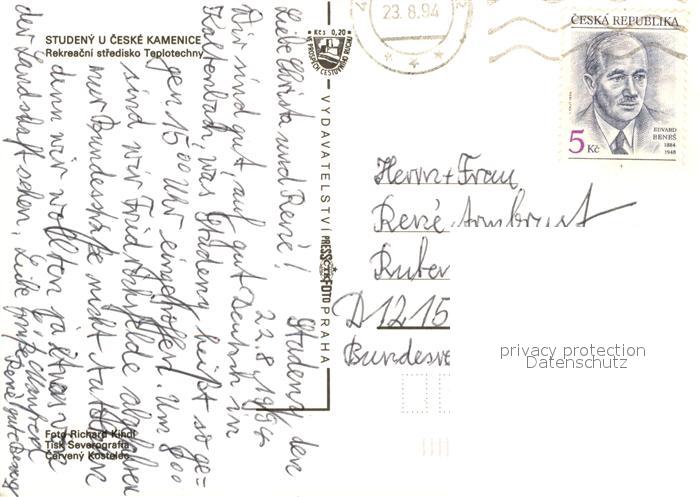 STUDENÝ U ČESKÉ KAMENICE
Rekreační středisko Teplotechny
Kčs 0,20
VE PROSPĚCH CESTOVNÍHO RUCHU
23.8.94
ČESKÁ REPUBLIKA
EDVARD
BENEŠ
1884
1948
5 Kč
VYDAVATELSTVÍ PRESSFOTO PRAHA
ČTK
Studený den
22.8.1994
Liebe Christa und René!
Wir sind gut, auf gut Deutsch in
Kaltenbach, was Studený heißt so ge-
gen 15 00 Uhr eingetroffen. Um 8 00
sind wir Friedrichsfelde abgefahren
nur Bundesstraße nicht Autobahn
denn wir wollten ja etwas von
der Landschaft sehen. Liebe Grüße
Herrn + Frau
René Armbrust
D 1215
Foto Richard Kindl
Tisk Severografia
Červený Kostelec
privacy protection
Datenschutz